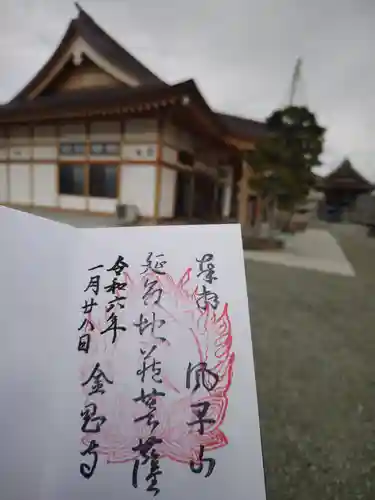 奉拝
風早山
延命地蔵菩薩
令和六年
一月廿八日
金思寺